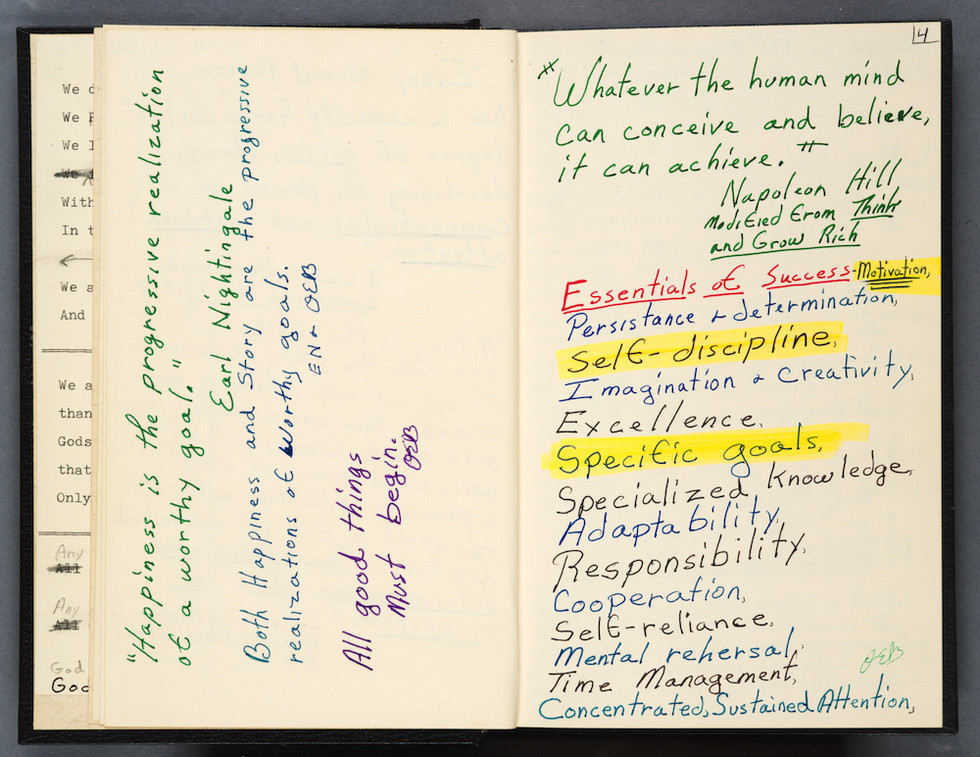 We
We
We
We
With
In t
We a
And
We a
than
Gods
that
Only
Any
All
Any
All
God
God
"Happiness is the progressive realization
of a worthy goal."
Earl Nightingale
Both Happiness and Story are the progressive
realizations of worthy goals.
EN + OEB
All good things
Must begin.
OEB
4
"Whatever the human mind
can conceive and believe,
it can achieve."
Napoleon Hill
Modified from Think
and Grow Rich
Essentials of Success-Motivation,
Persistance + determination,
Self-discipline,
Imagination + Creativity,
Excellence,
Specific goals,
Specialized Knowledge,
Adaptability,
Responsibility,
Cooperation,
Self-reliance,
Mental rehersal,
Time Management,
OEB
Concentrated, Sustained Attention,